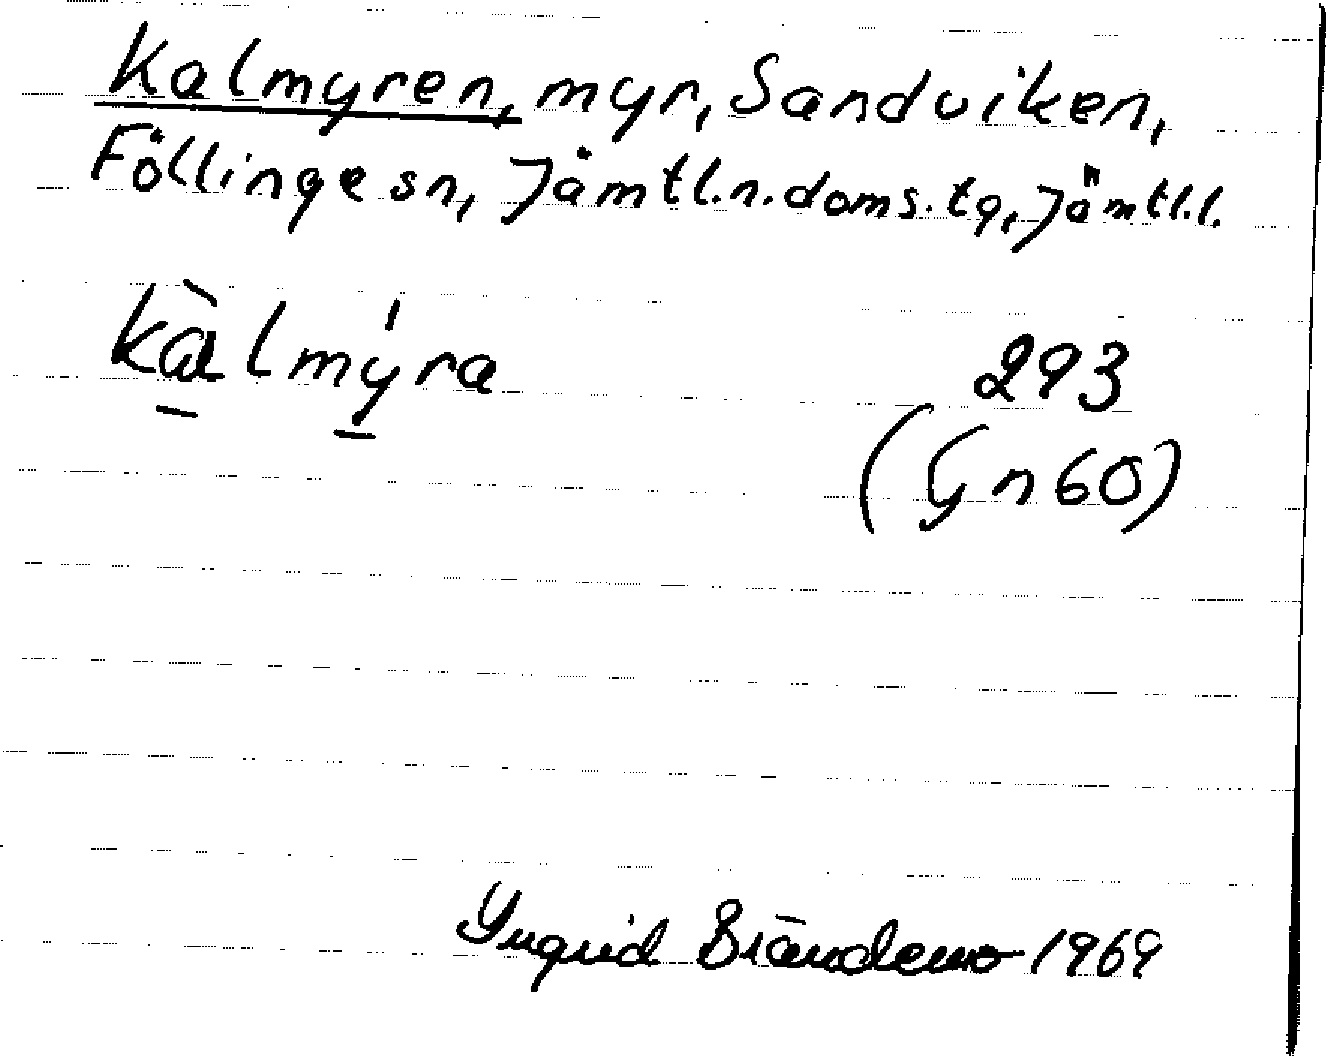 Kalmyren, myr, Sandviken,
Föllinge sn, Jämtl.n.doms.tg, Jämtl.l.
kàlmýra
293
(Gn60)
Yngrid Brāndemo 1969